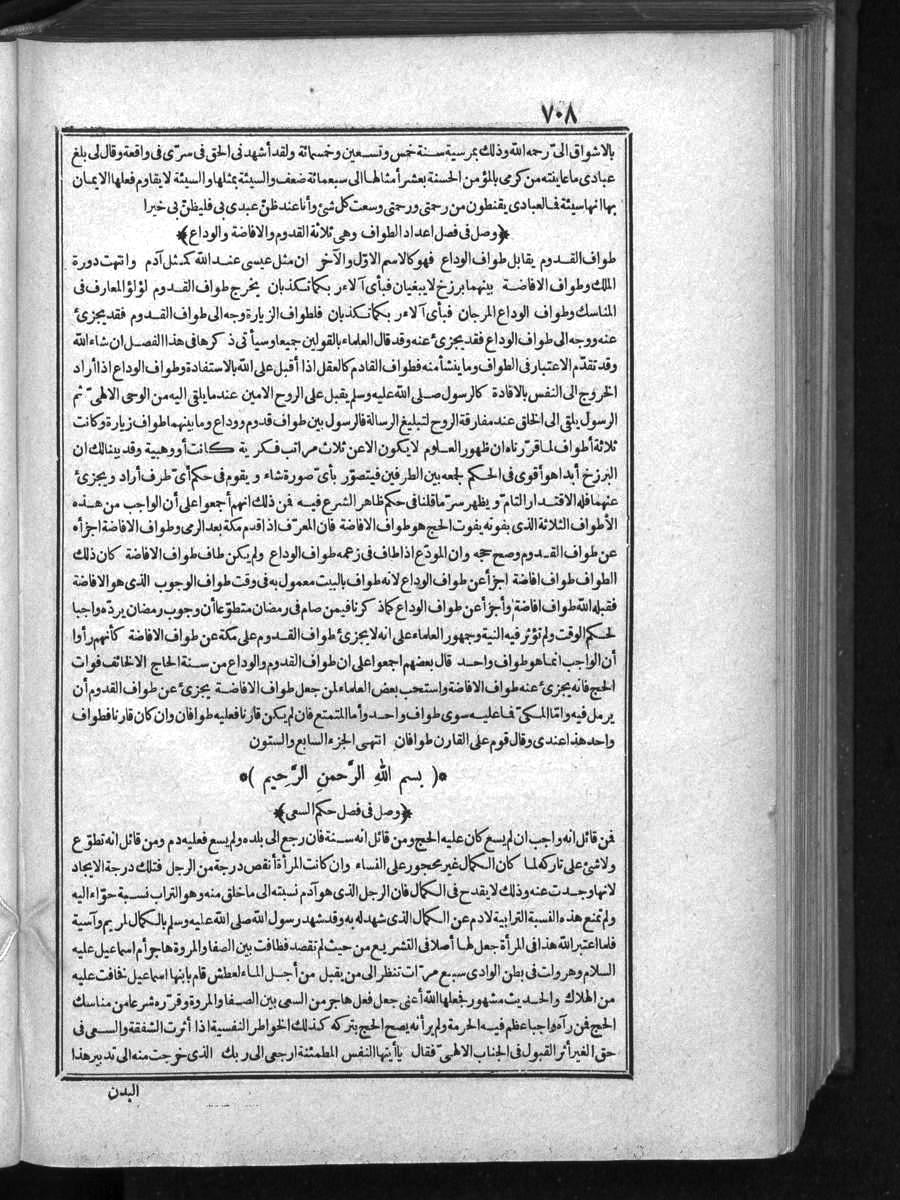 ٧٠٨
بالاشواق الىّ رحمه الله وذلك بمرسية سنة خس وتسعين وخسمائة ولقد أشهدنى الحق فى سرّى فى واقعة وقال لى بلغ
عبادى ما عاينته من كرمى بالمؤمن الحسنة بعشر أمثالها الى سبعمائة ضعف والسيئة بمثلها والسيئة لا يقاوم فعلها الايمان
بها انها سيئة فمالعبادى يقنطون من رحمتى ورحمتى وسعت كل شئ وأنا عند ظنّ عبدى بى فليظنّ بى خيرا
﴿وصل فى فصل اعداد الطواف وهى ثلاثة القدوم والافاضة والوداع﴾
طواف القدوم يقابل طواف الوداع فهو كالاسم الاوّل والآخر ان مثل عيسى عند الله كمثل آدم وانتهت دورة
الملك وطواف الافاضة بينهما برزخ لا يبغيان فبأى آلاء ربكما تكذبان يخرج طواف القدوم لؤلؤ المعارف فى
المناسك وطواف الوداع المرجان فبأى آلاء ربكما تكذبان فلطواف الزيارة وجه الى طواف القدوم فقد يجزئ
عنه ووجه الى طواف الوداع فقد يجزئ عنه وقد قال العلماء بالقولين جميعا وسيأتى ذكرها فى هذا الفصل ان شاء الله
وقد تقدّم الاعتبار فى الطواف وما ينشأ منه فطواف القادم كالعقل اذا أقبل على الله بالاستفادة وطواف الوداع اذا أراد
الخروج الى النفس بالافادة كالرسول صلى الله عليه وسلم يقبل على الروح الامين عند ما يلقى اليه من الوحى الالهىّ ثم
الرسول يلقى الى الخلق عند مفارقة الروح لتبليغ الرسالة فالرسول بين طواف قدوم ووداع وما بينهما طواف زيارة وكانت
ثلاثة أطواف لما قرّرناه ان ظهور العلوم لا يكون الا عن ثلاث مراتب فكرية كانت أو وهبية وقد بينا لك ان
البرزخ أبدا هو أقوى فى الحكم لجمعه بين الطرفين فيتصوّر بأىّ صورة شاء ويقوم فى حكم أىّ طرف أراد ويجزئ
عنهما فله الاقتدار التامّ ويظهر سرّ ما قلنا فى حكم ظاهر الشرع فيه فمن ذلك انهم أجمعوا على أن الواجب من هذه
الأطواف الثلاثة الذى بفوته يفوت الحج هو طواف الافاضة فان المعرّف اذا قدم مكة بعد الرمى وطواف الافاضة اجزأه
عن طواف القدوم وصح حجه وان المودّع اذا طاف فى زعمه طواف الوداع ولم يكن طاف طواف الافاضة كان ذلك
الطواف طواف افاضة اجزأ عن طواف الوداع لانه طواف بالبيت معمول به فى وقت طواف الوجوب الذى هو الافاضة
فقبله الله طواف افاضة وأجزأ عن طواف الوداع كما ذكرنا فيمن صام فى رمضان متطوّعا أن وجوب رمضان يردّه واجبا
لحكم الوقت ولم تؤثر فيه النية وجمهور العلماء على انه لا يجزئ طواف القدوم على مكة عن طواف الافاضة كأنهم رأوا
أن الواجب انما هو طواف واحد قال بعضهم اجمعوا على ان طواف القدوم والوداع من سنة الحاج الا لخائف فوات
الحج فانه يجزئ عنه طواف الافاضة واستحب بعض العلماء لمن جعل طواف الافاضة يجزئ عن طواف القدوم أن
يرمل فيه وامّا المكىّ فما عليه سوى طواف واحد وأما المتمتع فان لم يكن قارنا فعليه طوافان وان كان قارنا فطواف
واحد هذا عندى وقال قوم على القارن طوافان انتهى الجزء السابع والستون
*( بسم الله الرّحمن الرّحيم )*
﴿وصل فى فصل حكم السعى﴾
فمن قائل انه واجب ان لم يسع كان عليه الحج ومن قائل انه سنة فان رجع الى بلده ولم يسع فعليه دم ومن قائل انه تطوّع
ولا شئ على تاركه لما كان الكمال غير محجور على النساء وان كانت المرأة أنقص درجة من الرجل فتلك درجة الايجاد
لانها وجدت عنه وذلك لا يقدح فى الكمال فان الرجل الذى هو آدم نسبته الى ما خلق منه وهو التراب نسبة حوّاء اليه
ولم تمنع هذه النسبة الترابية لآدم عن الكمال الذى شهد له به وقد شهد رسول الله صلى الله عليه وسلم بالكمال لمريم وآسية
فلما اعتبر الله هذا فى المرأة جعل لها أصلا فى التشريع من حيث لم تقصد فطافت بين الصفا والمروة هاجر أم اسماعيل عليه
السلام وهرولت فى بطن الوادى سبع مرّات تنظر الى من يقبل من أجل الماء لعطش قام بابنها اسماعيل نخافت عليه
من الهلاك والحديث مشهور فجعلها الله أعنى جعل فعل هاجر من السعى بين الصفا والمروة وقرّره شرعا من مناسك
الحج فمن رآه واجبا عظم فيه الحرمة ولم ير أنه يصح الحج بتركه كذلك الخواطر النفسية اذا أثرت الشفقة والسعى فى
حق الغير أثر القبول فى الجناب الالهىّ فقال يا أيتها النفس المطمئنة ارجعى الى ربك الذى خرجت منه الى تدبير هذا
البدن